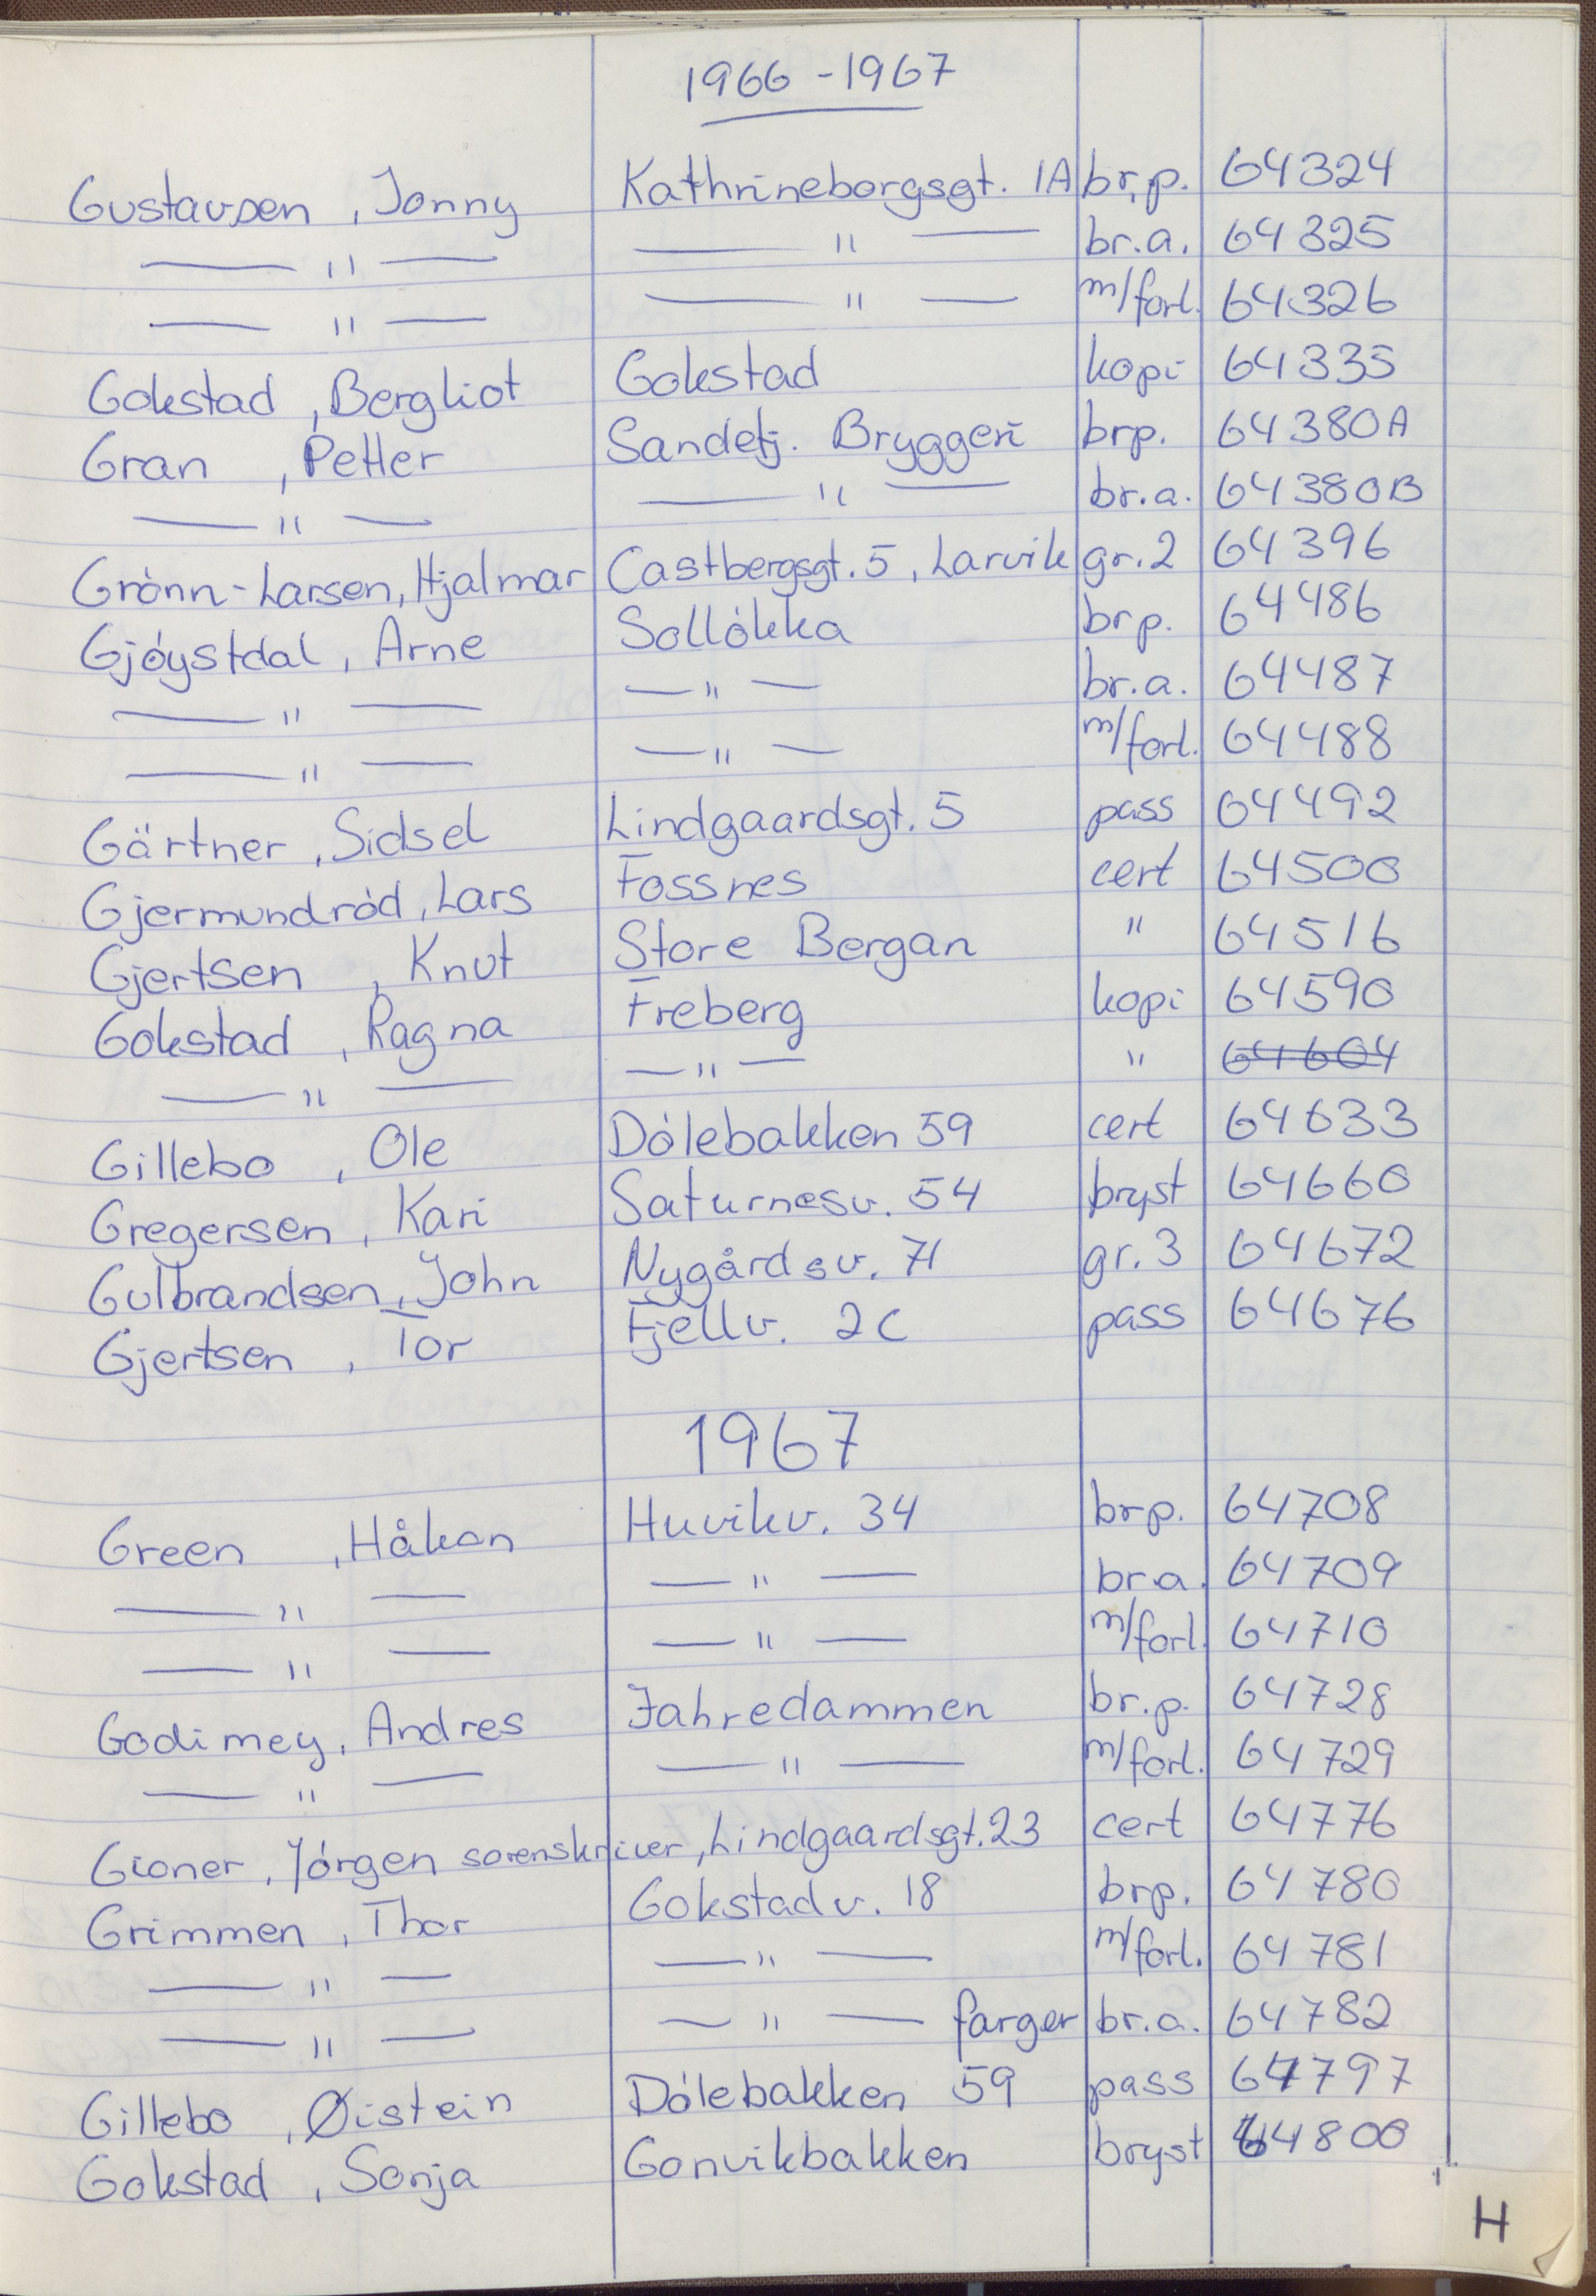 1966 - 1967
Gustavsen, Jonny Kathrineborgsgt. 1A br.p. 64324
— " — — " — br.a. 64325
— " — — " — m/forl. 64326
Gokstad, Bergliot Gokstad kopi 64335
Gran, Petter Sandefj. Bryggeri brp. 64380A
— " — — " — br.a. 64380B
Grónn-Larsen, Hjalmar Castbergsgt. 5, Larvik gr. 2 64396
Gjóystdal, Arne Sollókka brp. 64486
— " — — " — br.a. 64487
— " — — " — m/forl. 64488
Gärtner, Sidsel Lindgaardsgt. 5 pass 64492
Gjermundród, Lars Fossnes cert 64500
Gjertsen, Knut Store Bergan " 64516
Gokstad, Ragna Freberg kopi 64590
— " — — " — " 64604
Gillebo, Ole Dólebakken 59 cert 64633
Gregersen, Kari Saturnesv. 54 bryst 64660
Gulbrandsen, John Nygårdsv. 71 gr. 3 64672
Gjertsen, Tor Fjellv. 2C pass 64676
1967
Green, Håkon Huvikv. 34 brp. 64708
— " — — " — br.a. 64709
— " — — " — m/forl. 64710
Godimey, Andres Jahredammen br.p. 64728
— " — — " — m/forl. 64729
Gioner, Jórgen sorenskriver, Lindgaardsgt. 23 cert 64776
Grimmen, Thor Gokstadv. 18 brp. 64780
— " — — " — m/forl. 64781
— " — — " — farger br.a. 64782
Gillebo, Øistein Dólebakken 59 pass 64797
Gokstad, Sonja Gonvikbakken bryst 64800
H